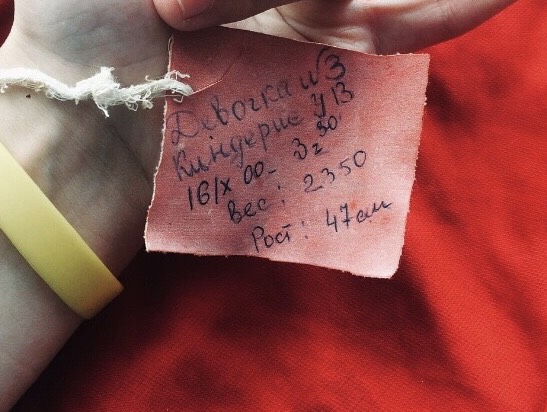 Девочка из
Киндерис У В
16/X 00 - 3 г 30'
Вес: 2350
Рост: 47 см